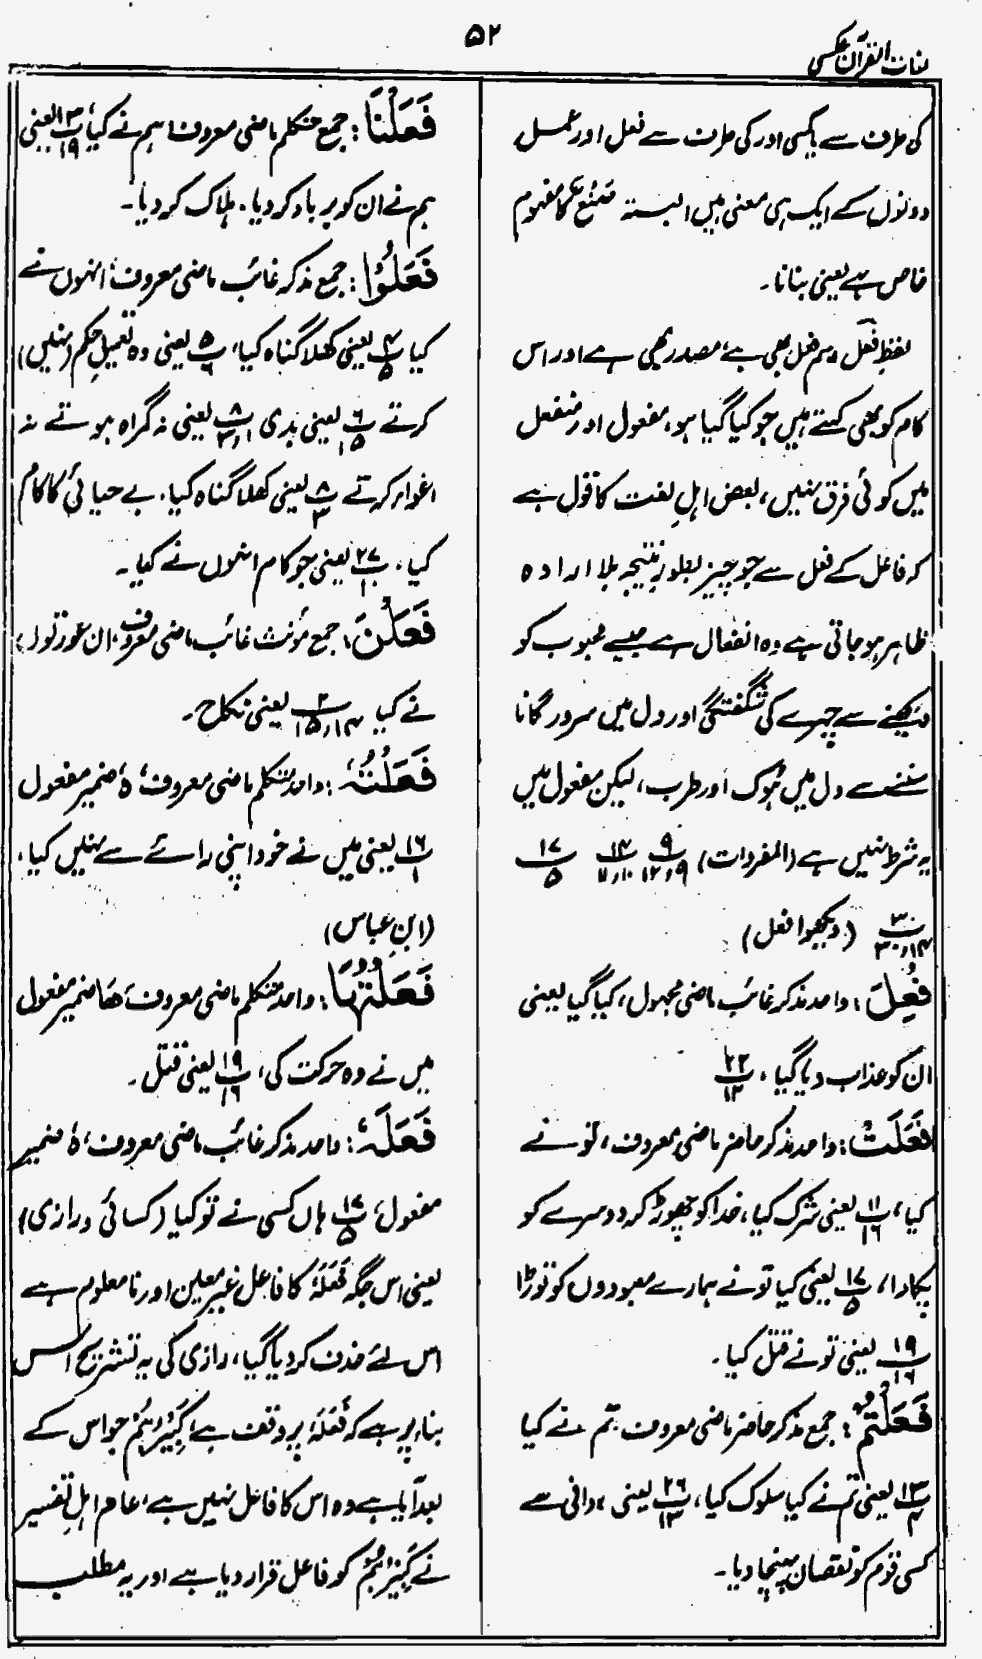 لغات القرآن عکسی
۵۲
کی طرف سے یا کسی اور کی طرف سے فعل اور عمل
دونوں کے ایک ہی معنی ہیں البتہ صُنْعٌ کا مفہوم
خاص ہے یعنی بنانا۔
لفظِ فَعْل، اسم فعل بھی ہے، مصدر بھی ہے اور اس
کام کو بھی کہتے ہیں جو کیا گیا ہو، مفعول اور منفعل
میں کوئی فرق نہیں، بعض اہلِ لغت کا قول ہے
کہ فاعل کے فعل سے جو چیز بطور نتیجہ بلا ارادہ
ظاہر ہو جاتی ہے وہ انفعال ہے جیسے محبوب کو
دیکھنے سے چہرے کی شگفتگی اور دل میں سرور گانا
سننے سے دل میں ہُوک اور طرب، لیکن مفعول میں
یہ شرط نہیں ہے (المفردات) پ۹ ۹،۱۲ پ۱۲ ۱۰،۷ پ۱۷ ۵
پ۳۰ ۱۴،۳۰ (دیکھو افعل)
فُعِلَ: واحد مذکر غائب ماضی مجہول، کیا گیا یعنی
ان کو عذاب دیا گیا، پ۲۲ ۱۲
فَعَلْتَ: واحد مذکر حاضر ماضی معروف، تو نے
کیا، پ۱۱ ۱۶ یعنی شرک کیا، خدا کو چھوڑ کر دوسرے کو
پکارا، پ۱۷ ۵ یعنی کیا تو نے ہمارے معبودوں کو توڑا
پ۱۹ ۶ یعنی تو نے قتل کیا۔
فَعَلْتُمْ: جمع مذکر حاضر ماضی معروف تم نے کیا
پ۱۳ ۴ یعنی تم نے کیا سلوک کیا، پ۲۶ ۱۳ یعنی نادانی سے
کسی قوم کو نقصان پہنچا دیا۔
فَعَلْنَا: جمع متکلم ماضی معروف، ہم نے کیا، پ۱۳ ۱۹ یعنی
ہم نے ان کو برباد کر دیا۔ ہلاک کر دیا۔
فَعَلُوْا: جمع مذکر غائب ماضی معروف، انہوں نے
کیا پ۴ ۵ یعنی کھلا گناہ کیا، پ۵ ۶ یعنی وہ تعمیلِ حکم (نہیں)
کرتے پ۶ ۱۵ یعنی بدی پ۸ ۲،۱ یعنی نہ گمراہ ہوتے نہ
اغواء کرتے پ۸ ۳ یعنی کھلا گناہ کیا۔ بے حیائی کا کام
کیا، پ۲۷ ۱۰ یعنی جو کام انہوں نے کیا۔
فَعَلْنَ: جمع مؤنث غائب ماضی معروف، ان عورتوں
نے کیا پ۲ ۱۵،۱۴ یعنی نکاح۔
فَعَلْتُہٗ: واحد متکلم ماضی معروف، ہٗ ضمیر مفعول
پ۱۶ ۱ یعنی میں نے خود اپنی رائے سے نہیں کیا،
(ابنِ عباس)
فَعَلْتُہَا: واحد متکلم ماضی معروف، ھَا ضمیر مفعول
میں نے وہ حرکت کی، پ۱۹ ۶ یعنی قتل۔
فَعَلَہٗ: واحد مذکر غائب ماضی معروف، ہٗ ضمیر
مفعول، پ۱۷ ۵ ہاں کسی نے تو کیا (کسائی و رازی)
یعنی اس جگہ فَعَلَہٗ کا فاعل غیر معین اور نامعلوم ہے
اس لئے حذف کر دیا گیا، رازی کی یہ تشریح اس
بناء پر ہے کہ فَعَلَہٗ پر وقف ہے، کَبِیْرُہُمْ جو اس کے
بعد آیا ہے وہ اس کا فاعل نہیں ہے، عام اہلِ تفسیر
نے کَبِیْرُہُمْ کو فاعل قرار دیا ہے اور یہ مطلب